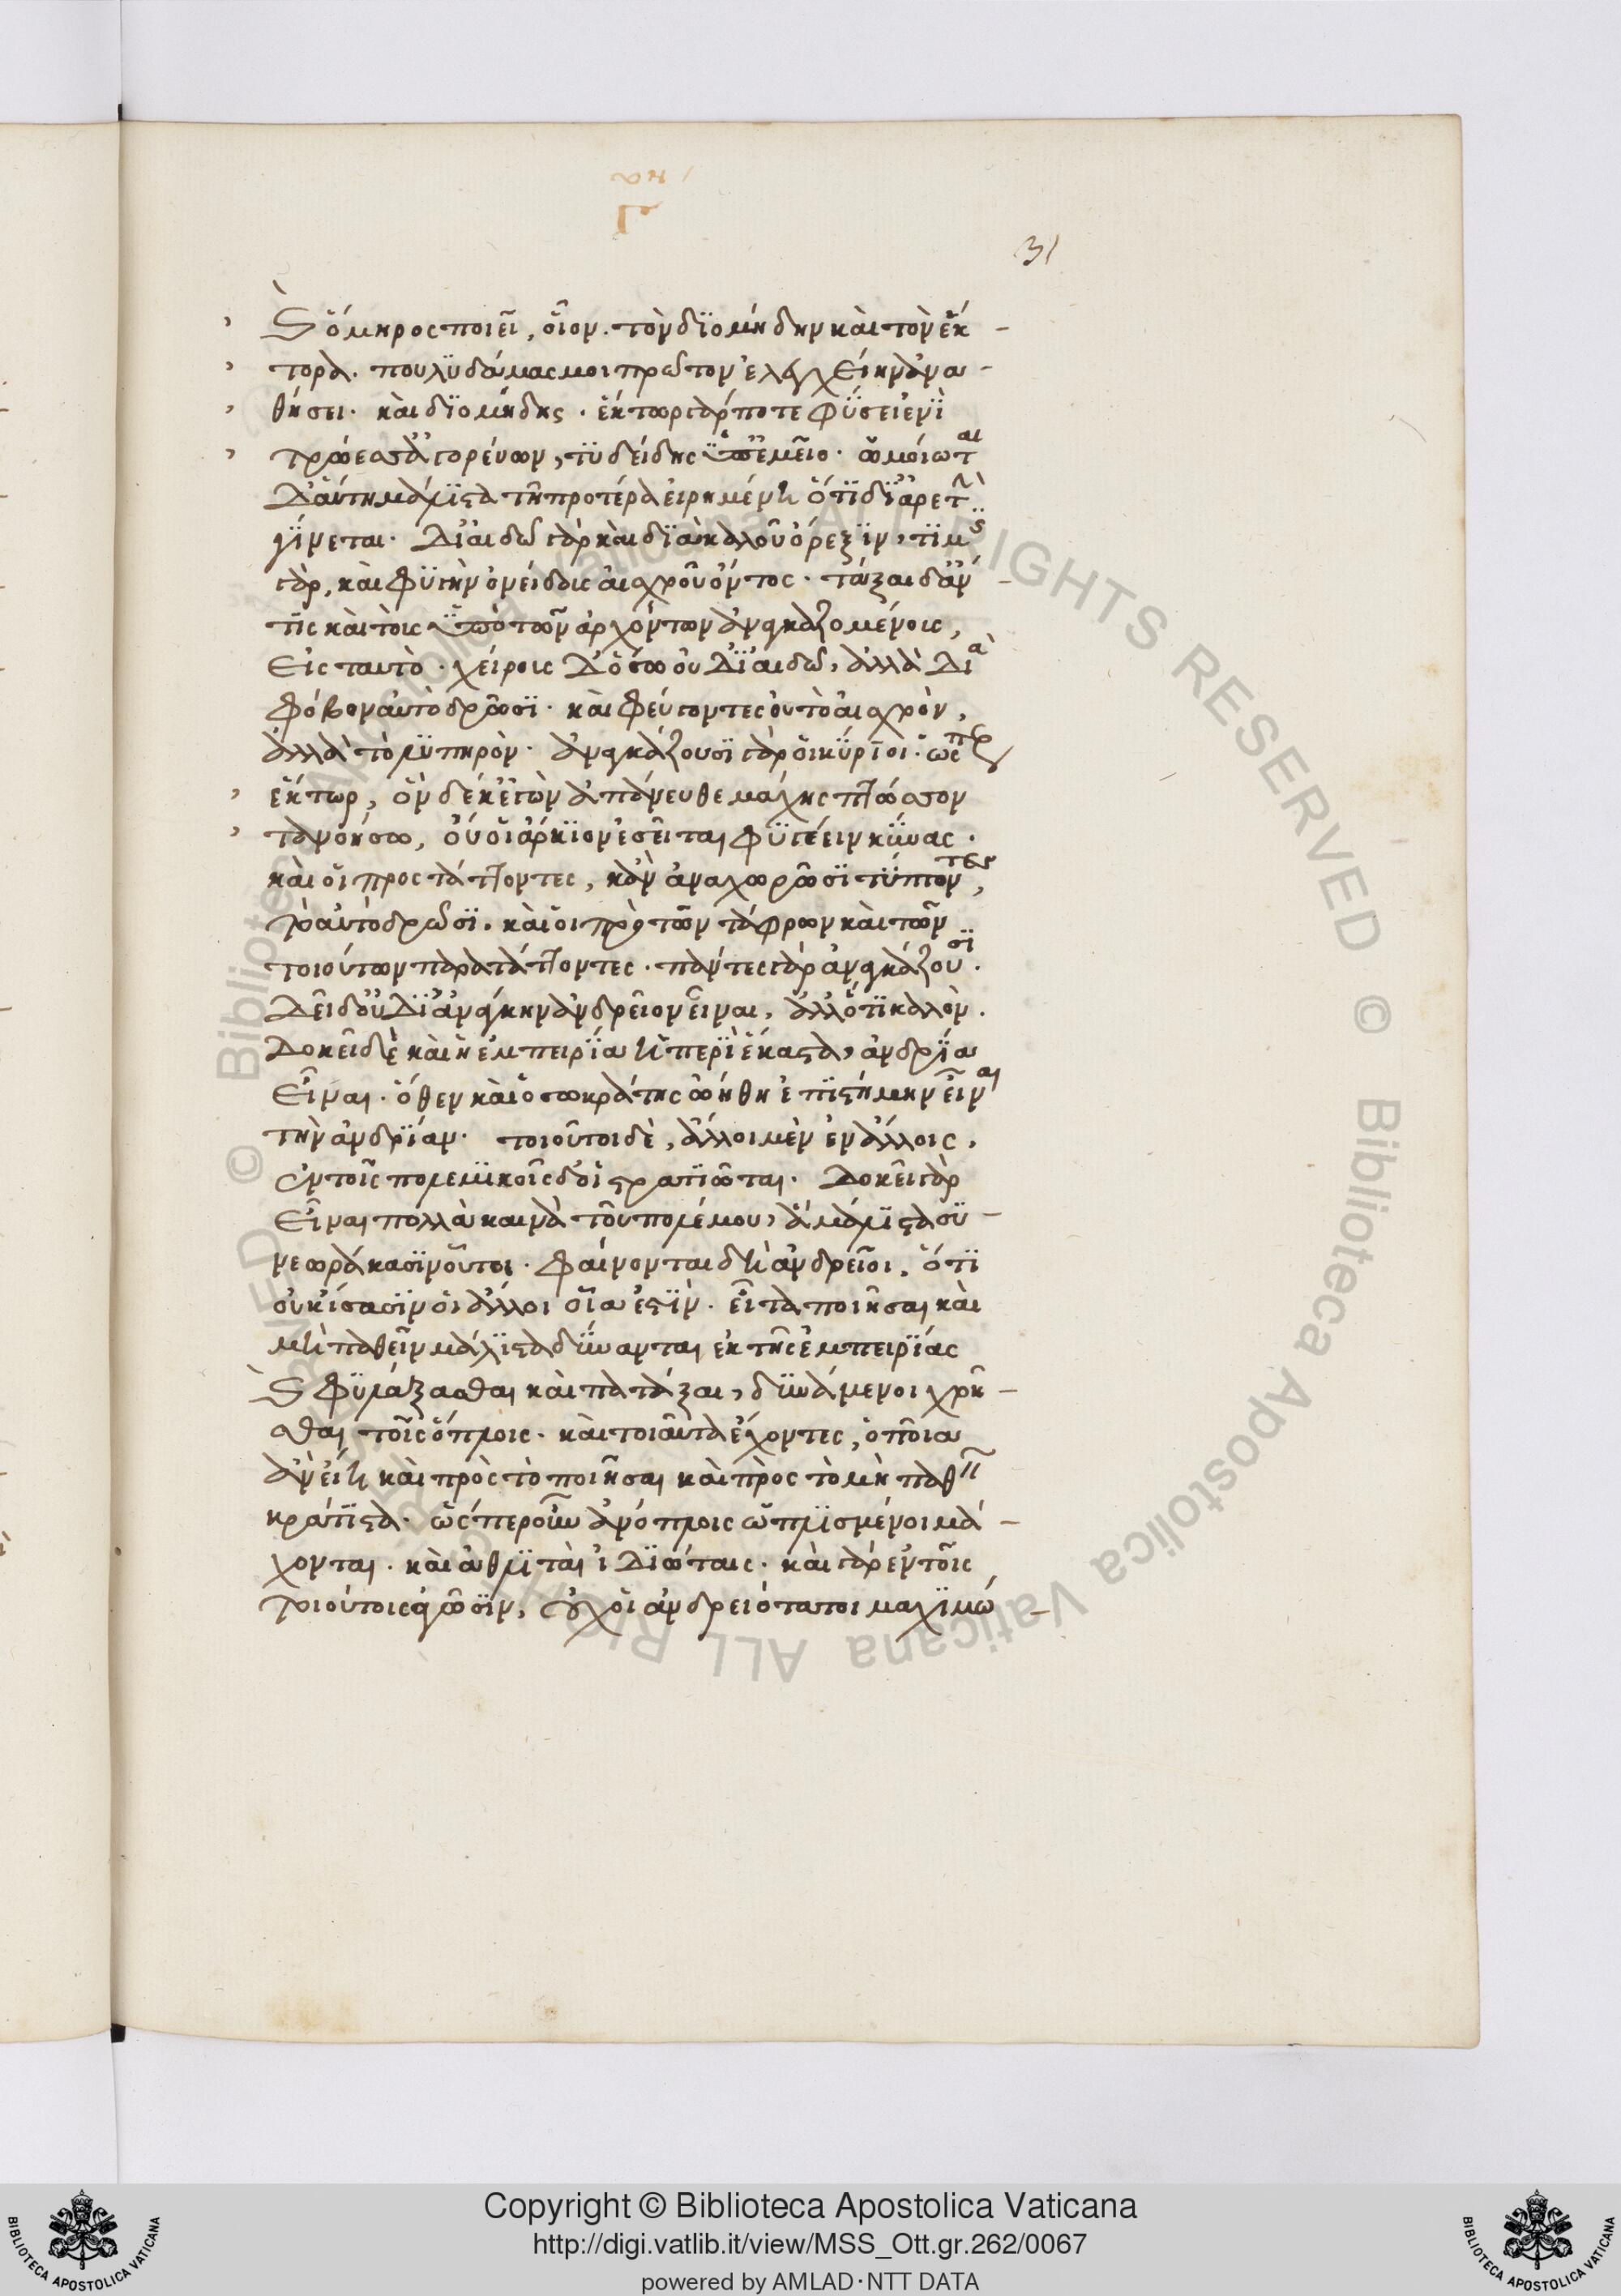 31
καὶ ὅμηρος ποιεῖ, οἷον. τὸν διομήδην καὶ τὸν ἕκ-
τορα. πουλυδάμας μοι πρῶτον ἐλεγχείην ἀνα-
θήσει. καὶ διομήδης. ἕκτωρ γάρ ποτε φήσει ἐνὶ
τρώεσσ' ἀγορεύων, τυδείδης ὑπ' ἐμεῖο. ὡμοίωται
δ' αὕτη μάλιστα τῇ προτέρα εἰρημένη ὅτι δι' ἀρετὴν
γίνεται. δι' αἰδῶ γὰρ καὶ διὰ καλοῦ ὄρεξιν, τιμῆς
γάρ, καὶ φυγὴν ὀνείδους αἰσχροῦ ὄντος. τάξαι δ' ἄν
τις καὶ τοὺς ὑπὸ τῶν ἀρχόντων ἀναγκαζομένοις,
εἰς ταυτὸ. χείροις δ' ὅσω οὐ δι' αἰδῶ, ἀλλὰ διὰ
φόβον αὐτὸ δρῶσι. καὶ φεύγοντες οὐ τὸ αἰσχρὸν,
ἀλλὰ τὸ λυπηρὸν. ἀναγκάζουσι γὰρ οἱ κύριοι. ὥσπερ
ἕκτωρ, ὃν δέ κ' ἐγὼν ἀπάνευθε μάχης πτώσσον
τα νοήσω, οὔ οἱ ἄρκιον ἐσεῖται φυγέειν κύνας.
καὶ οἱ προστάττοντες, κἂν ἀναχωρῶσι τύπτοντες,
τὸ αὐτὸ δρῶσι. καὶ οἱ πρὸ τῶν τάφρων καὶ τῶν
τοιούτων παρατάττοντες. πάντες γὰρ ἀναγκάζουσι.
δεῖ δ' οὐ δι' ἀνάγκην ἀνδρεῖον εἶναι, ἀλλ' ὅτι καλὸν.
δοκεῖ δὲ καὶ ἡ ἐμπειρία ἡ περὶ ἕκαστα, ἀνδρία
εἶναι. ὅθεν καὶ ὁ σωκράτης ὠήθη ἐπιστήμην εἶναι
τὴν ἀνδρίαν. τοιοῦτοι δὲ, ἄλλοι μὲν ἐν ἄλλοις,
ἐν τοῖς πολεμικοῖς δ' οἱ στρατιῶται. δοκεῖ γὰρ
εἶναι πολλὰ καινὰ τοῦ πολέμου, ἃ μάλιστα συ-
νεωράκασιν οὗτοι. φαίνονται δὴ ἀνδρεῖοι, ὅτι
οὐκ ἴσασιν οἱ ἄλλοι οἷα ἐστὶν. εἶτα ποιῆσαι καὶ
μὴ παθεῖν μάλιστα δύνανται ἐκ τῆς ἐμπειρίας
καὶ φυλάξασθαι καὶ πατάξαι, δυνάμενοι χρῆ-
σθαι τοῖς ὅπλοις. καὶ τοιαῦτα ἔχοντες, ὁποῖα
ἂν εἴη καὶ πρὸς τὸ ποιῆσαι καὶ πρὸς τὸ μὴ παθεῖν
κράτιστα. ὥσπερ οὖν ἀνόπλοις ὡπλισμένοι μά-
χονται. καὶ ἀθληταὶ ἰδιώταις. καὶ γὰρ ἐν τοῖς
τοιούτοις ἀγῶσιν, οὐχ οἱ ἀνδρειότατοι μαχιμώ-
Copyright © Biblioteca Apostolica Vaticana
http://digi.vatlib.it/view/MSS_Ott.gr.262/0067
powered by AMLAD·NTT DATA